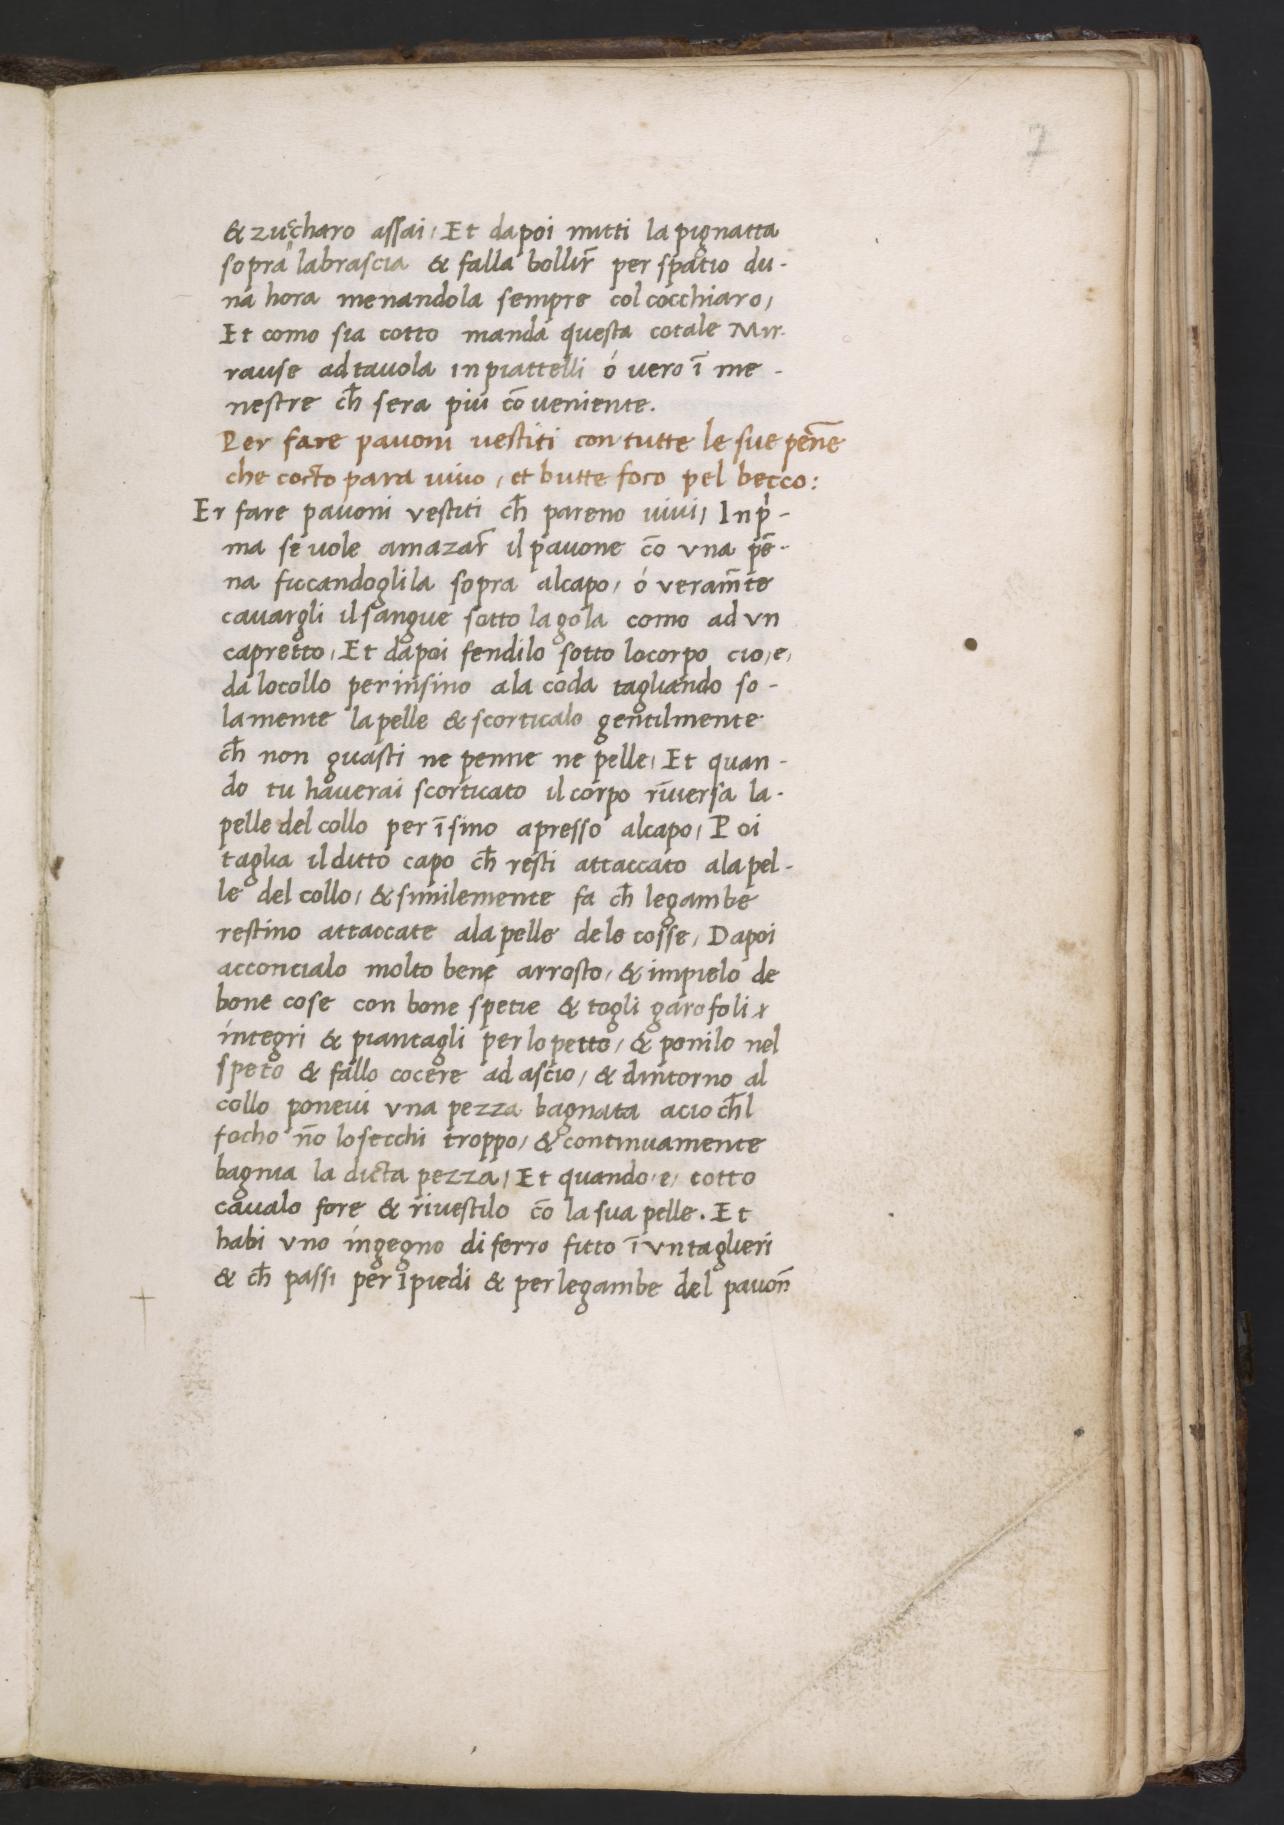 7
& zuccharo assai, Et dapoi mitti la pignatta
sopra labrascia & falla bollir̃ per spatio du-
na hora menandola sempre col cocchiaro,
Et como sia cotto manda questa cotale Mir-
rause ad tavola in piattelli ó vero ī me-
nestre ch̄ sera piu cōveniente.
Per fare pavoni vestiti con tutte le sue pēne
che cocto para vivo, et butte foco pel becco:
Er fare pavoni vestiti ch̄ pareno vivi, In pⁱ-
ma se vole amazar̃ il pavone cō una pē-
na ficcandogli la sopra al capo, ó veram̄te
cavargli il sangue sotto la gola como ad un
capretto, Et dapoi fendilo sotto lo corpo cio, e,
da lo collo per insino ala coda tagliando so-
lamente la pelle & scorticalo gentilmente
ch̄ non guasti ne penne ne pelle, Et quan-
do tu haverai scorticato il corpo rīversa la-
pelle del collo per īsino apresso al capo, Poi
taglia il ditto capo ch̄ resti attaccato ala pel-
le del collo, & similemente fa ch̄ le gambe
restino attaccate ala pelle dele cosse, Dapoi
acconcialo molto bene arrosto, & impielo de
bone cose con bone spetie & togli garofoli
integri & piantagli per lo petto, & ponilo nel
speto & fallo cocere ad ascio, & dintorno al
collo ponevi una pezza bagnata acio ch̄l
focho nō lo secchi troppo, & continuamente
bagnia la dicta pezza, Et quando, e, cotto
cavalo fore & rivestilo cō la sua pelle. Et
habi uno ingegno di ferro fitto ī un taglieri
& ch̄ passi per i piedi & per le gambe del pavon̄